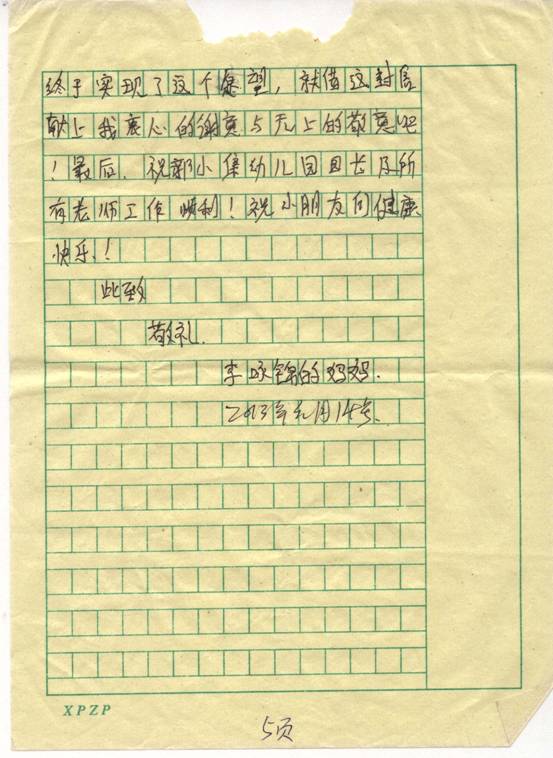 终于实现了这个愿望，就借这封信
献上我衷心的谢意与无上的敬意吧
！最后，祝郭小集幼儿园园长及所
有老师工作顺利！祝小朋友们健康
快乐！
此致
敬礼.
李咏锦的妈妈.
2013年 月14号.
XPZP
5页